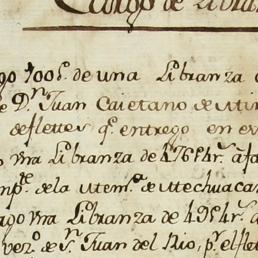 Cargo de Libran
go 700 p.s de una Libranza
e D.n Juan Caietano de
de fletes q.e entrego en
vna Libranza de 4765 4 r.s a fa
de la Item.a de Mechuacan
ago vna Libranza de 495 4 r.s
vez.o de S.n Juan del Rio, p.r el flet